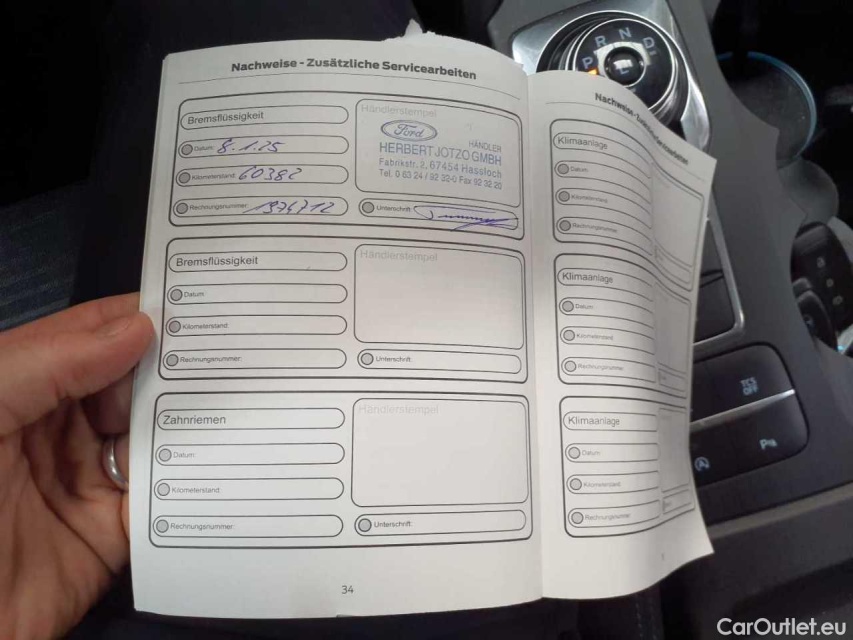 Nachweise - Zusätzliche Servicearbeiten
Bremsflüssigkeit
Datum: 8.1.25
Kilometerstand: 60382
Rechnungsnummer: 1974712
Händlerstempel
Ford
HÄNDLER
HERBERT JOTZO GMBH
Fabrikstr. 3, 67454 Hassloch
Tel. 0 63 24 / 92 32-0 Fax 92 32 20
Unterschrift:
Bremsflüssigkeit
Datum:
Kilometerstand:
Rechnungsnummer:
Händlerstempel
Unterschrift:
Zahnriemen
Datum:
Kilometerstand:
Rechnungsnummer:
Händlerstempel
Unterschrift:
34
Nachweise - Zusätzliche Servicearbeiten
Klimaanlage
Datum:
Kilometerstand:
Rechnungsnummer:
Klimaanlage
Datum:
Kilometerstand:
Rechnungsnummer:
Klimaanlage
Datum:
Kilometerstand:
Rechnungsnummer:
P R N D
L
TCS
OFF
CarOutlet.eu